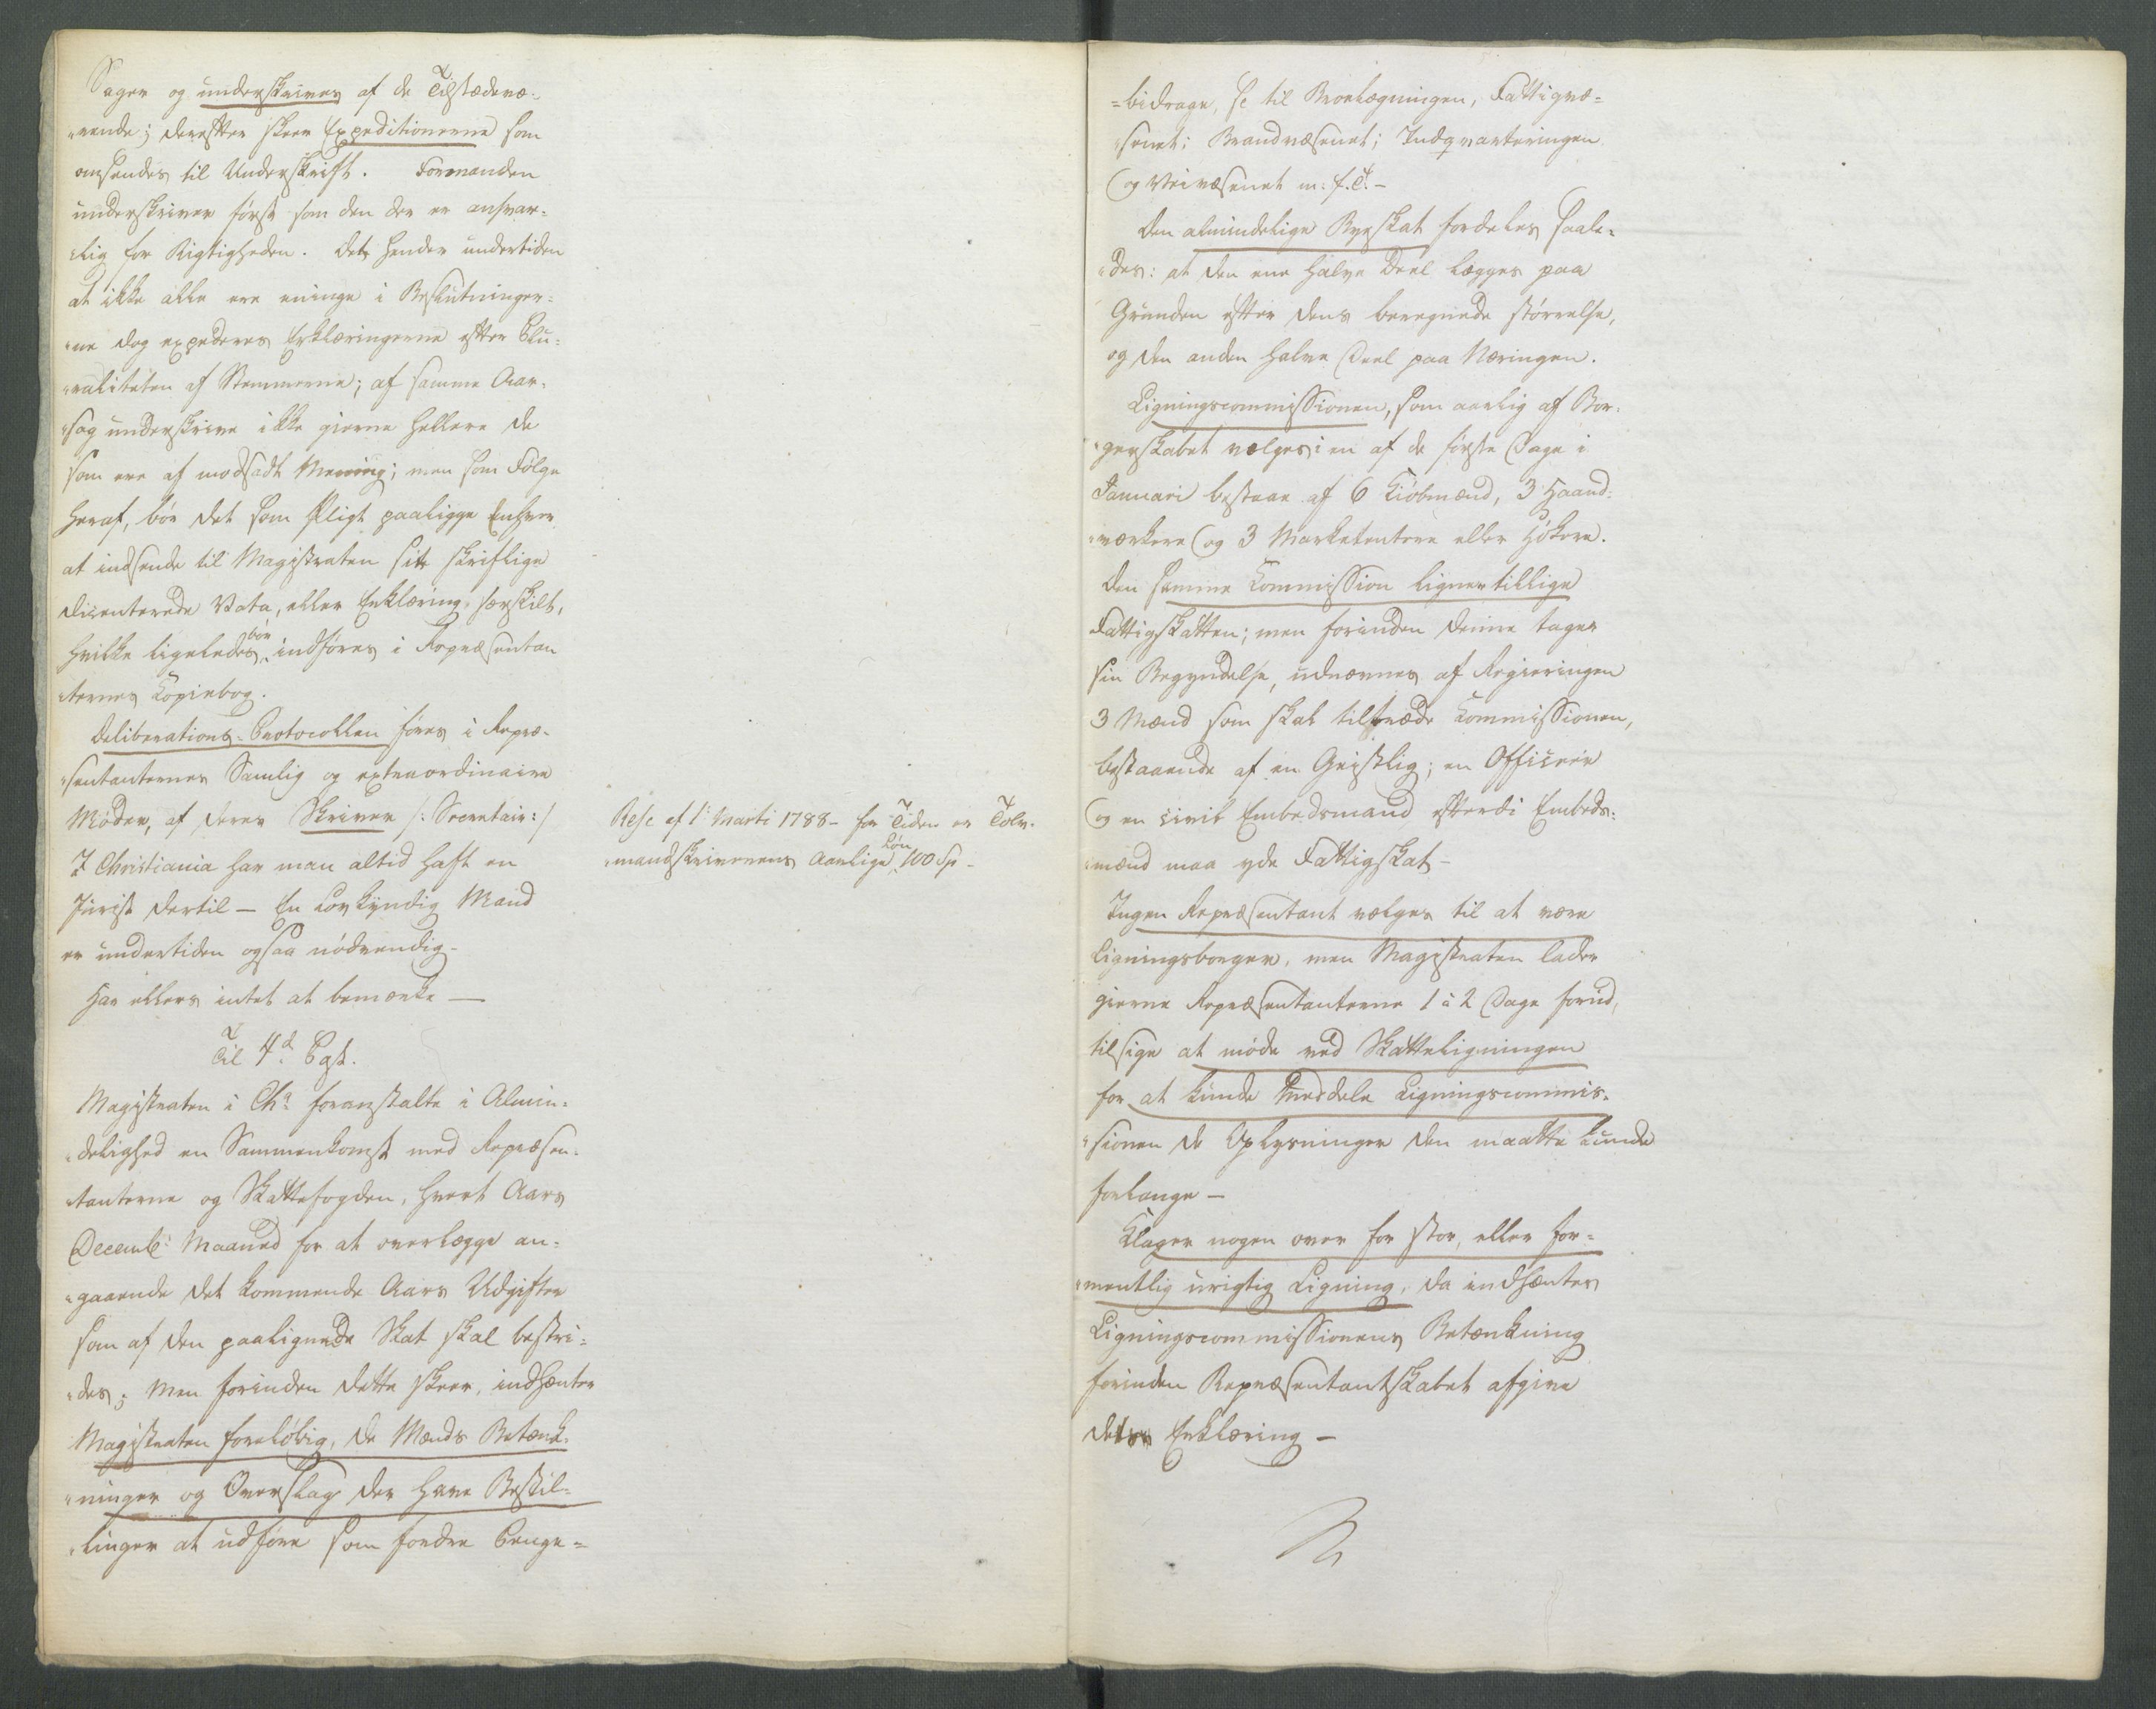 Sager og underskrives af de Tilstædevæ-
„rende; derefter skeer Expeditionerne som
omsendes til Underskrift. Formanden
underskriver først som den der er ansvar-
„lig for Rigtigheden. Det hender undertiden
at ikke alle ere eninge i Beslutninger-
„ne dog expederes Erklæringerne efter Plu-
„raliteten af Stemmerne; af samme Aar-
„sag underskrive ikke gierne hellere de
som ere af modsadt Mening; men som Følge
heraf, bør det som Pligt paaligge Enhver
at indsende til Magistraten sit skriflige
dicenterede Vota, eller Erklæring, særskilt,
hvilke ligeledes bør indføres i Repræsentan
„ternes Kopiebog.
Deliberations-Protocollen føres i Repræ-
„sentanternes Samlig og extraordinaire
Møder, af deres Skriver /: Secretair :/
I Christiania har man altid haft en
Jurist dertil — En Lovkyndig Mand
er undertiden ogsaa nödvendig -
Har ellers intet at bemærke —
Til 4d Post.
Magistraten i Cha foranstalte i Almin-
„delighed en Sammenkomst med Repræsen-
„tanterne og Skattefogden, hvert Aars
Decemb: Maaned for at overlægge an-
„gaaende det kommende Aars Udgifter
som af den paalignede Skat skal bestri-
„des; Men forinden dette skeer, indhænter
Magistraten foreløbig, de Mænds Betænk-
„ninger og Overslag der have Bestil-
„linger at udføre som fordre Penge-
Resc af 1 Marti 1788 - for Tiden er Tolv-
„mandskriverens Aarlige Løn 100 Sp -
=bidrage, se til Broelægningen, Fattigvæ-
„senet; Brandvæsenet; Indqvarteringen
og Veivæsenet m: f. A. -
Den almindelige Byeskat fordeles saale-
„des: at den ene halve Deel lægges paa
Grunden efter dens beregnede störrelse,
og den anden halve Deel paa Næringen.
Ligningscommissionen, som aarlig af Bor-
„gerskabet vælges i en af de første Dage i
Januari bestaar af 6 Kiöbmænd, 3 Haand-
„værkere og 3 Marketentere eller Høkere.
Den samme Kommission ligner tillige
Fattigskatten; men forinden denne tager
sin Begyndelse, udnævnes af Regieringen
3 Mænd som skal tiltræde Kommissionen,
bestaaende af en Geistlig; en Officeer
og en civil Embedsmand efterdi Embeds-
„mænd maa yde Fattigskat -
Ingen Repræsentant vælges til at være
Ligningsborger, men Magistraten lader
gierne Repræsentanterne 1 à 2 Dage forud,
tilsige at møde ved Skatteligningen
for at kunde meddele Ligningscommis-
„sionen de Uplysninger den maatte kunde
forlange -
Klager nogen over for stor, eller for-
„mentlig urigtig Ligning, da indhæntes
Ligningscommissionens Betænkning
forinden Repræsentantskabet afgive
deres Erklæring -